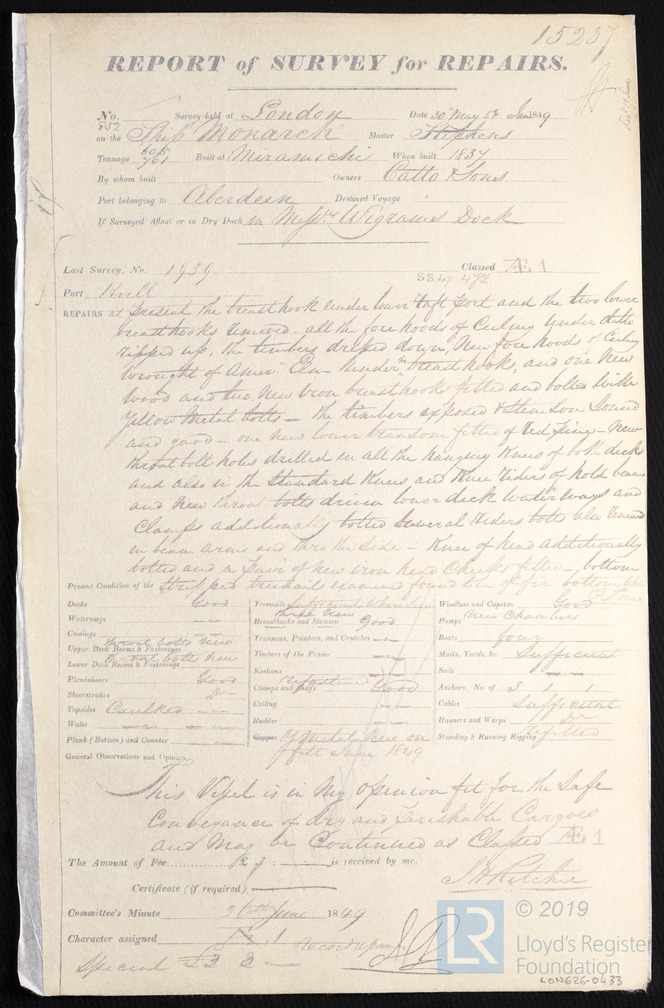 15237
REPORT of SURVEY for REPAIRS.
No. 852 Survey held at London Date 30th May 5th June 1849
on the Ship Monarch Master Stephens
Tonnage 701 Built at Miramichi When built 1837
By whom built Owners Catto & Sons
Port belonging to Aberdeen Destined Voyage
If Surveyed Afloat or in Dry Dock in Messrs Wigrams Dock
Last Survey, No. 1939 Classed Æ 1
Port Hull
REPAIRS At Present the breasthook under lower port and the two lower
breasthooks removed - all the fore hoods of Ceiling under ditto
ripped up, the timbers dressed down, New fore hoods of Ceiling
wrought of Amer. Elm under the breasthooks, and one New
wood and two New Iron breasthooks fitted and bolted with
Yellow Metal bolts - the timbers exposed & Stemson Sound
and good - one new lower transom fitted of Red Pine - New
throat bolt holes drilled in all the hanging Knees of both decks
and also in the Standard Knees and Knee Riders of hold beams
and New throat bolts driven lower deck waterways and
Clamps additionally bolted Several Riders bolts also
in beam arms and thro the Side - Knee of head additionally
bolted and a pair of new iron head Cheeks fitted - bottom
Present Condition of the Stripped treenails examined found
Decks Good
Waterways
Comings
Upper Deck Beams & Fastenings throat bolts New
Lower Deck Beams & Fastenings throat bolts New
Planksheers Good
Sheerstrakes Do
Topsides Caulked
Wales
Plank (Bottom) and Counter
Treenails
Breasthooks and Stemson Good
Transoms, Pointers, and Crutches
Timbers of the Frame
Keelsons
Clamps and Shelfs Refastened Good
Ceiling
Rudder
Copper Y Metal New on
felt June 1849
Windlass and Capstan Good
Pumps New Chambers
Boats four
Masts, Yards, &c. Sufficient
Sails
Anchors No. of 3 1 1
Cables Sufficient
Hawsers and Warps Do
Standing & Running Rigging Refitted
General Observations and Opinion,
This Vessel is in My Opinion fit for the Safe
Conveyance of Dry and Perishable Cargoes
and May be Continued as Classed Æ 1
The Amount of Fee is received by me,
Certificate (if required) J H Ritchie
Committee's Minute 26th June 1849
Character assigned Æ 1
Special £3 3 -
LR
© 2019
Lloyd's Register
Foundation
LON626-0433